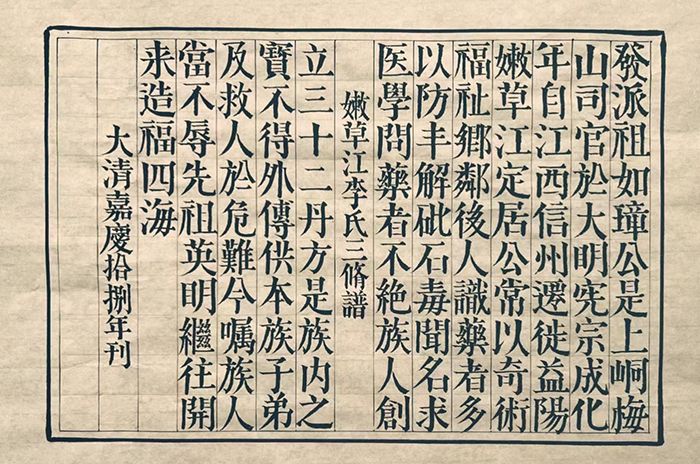 發派祖如璋公是上峒梅
山司官於大明宪宗成化
年自江西信州遷徙益陽
嫩草江定居公常以奇術
福祉鄉鄰後人識藥者多
以防丰解砒石毒聞名求
医學問藥者不绝族人創
嫩草江李氏三脩譜
立三十二丹方是族内之
寶不得外傳供本族子弟
及救人於危難今嘱族人
當不辱先祖英明繼往開
来造福四海
大清嘉慶拾捌年刊